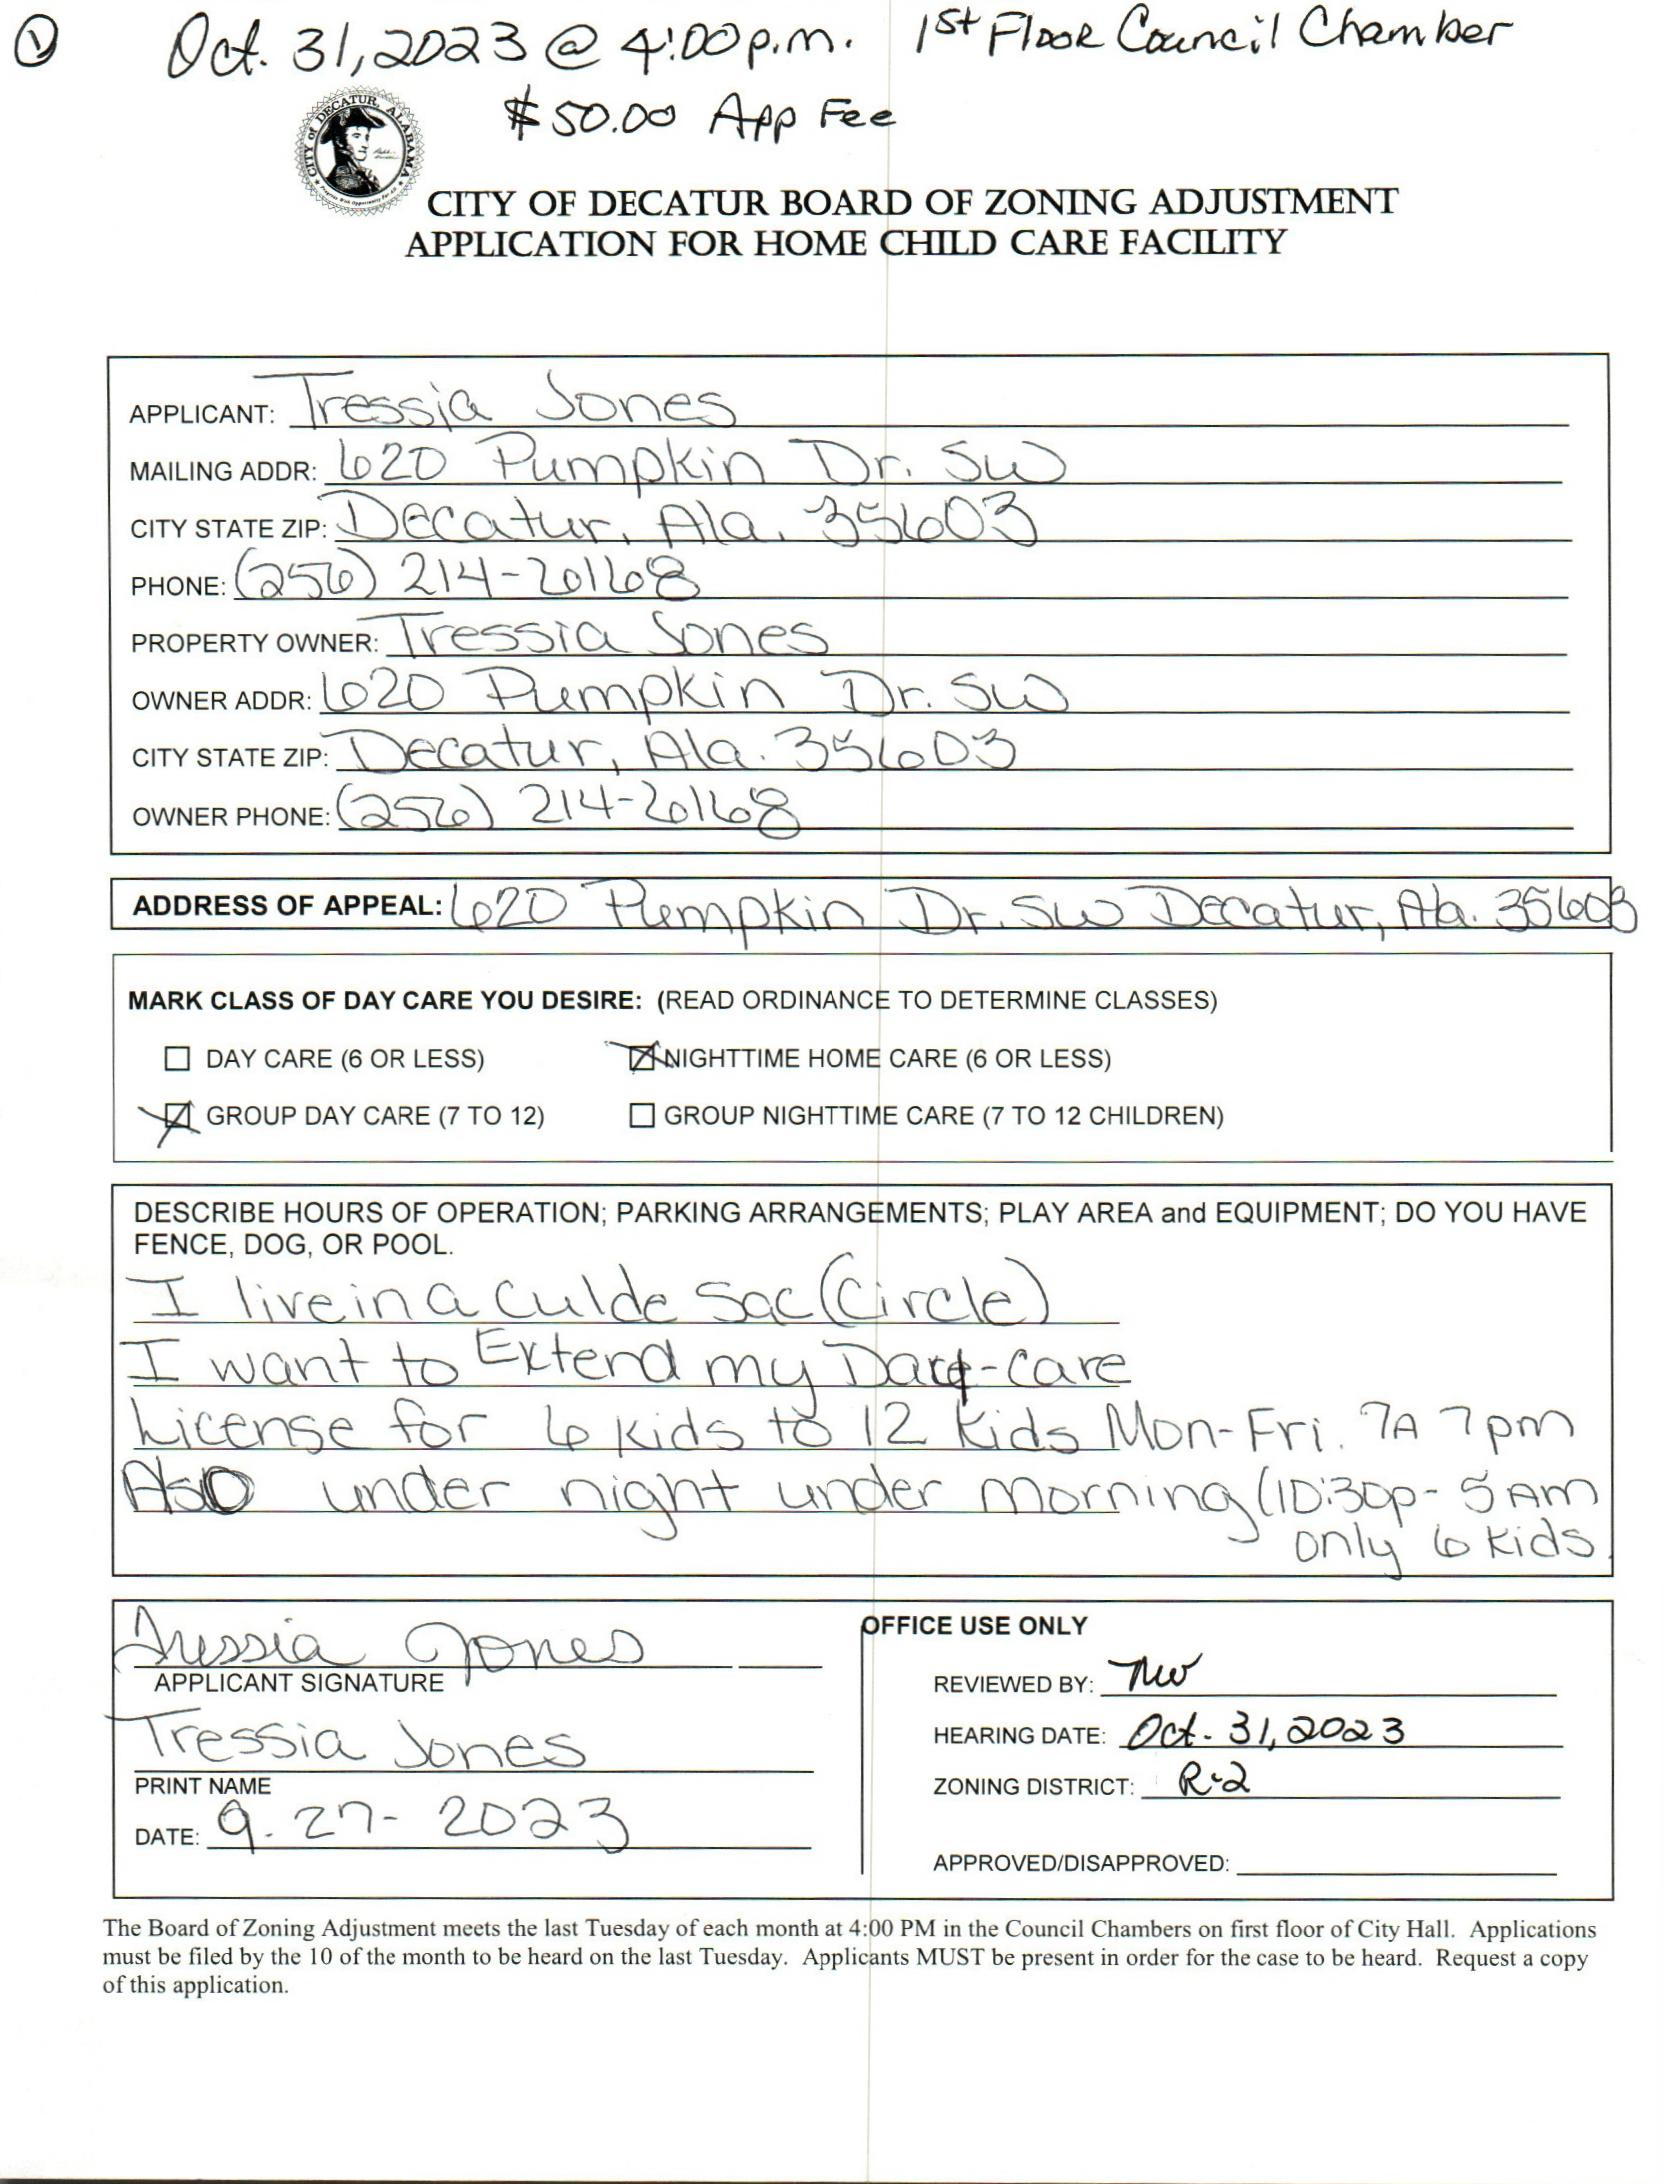 ① Oct. 31, 2023 @ 4:00 p.m. 1st Floor Council Chamber
$50.00 App Fee
CITY of DECATUR, ALABAMA
CITY OF DECATUR BOARD OF ZONING ADJUSTMENT
APPLICATION FOR HOME CHILD CARE FACILITY
APPLICANT: Tressia Jones
MAILING ADDR: 620 Pumpkin Dr. SW
CITY STATE ZIP: Decatur, Ala. 35603
PHONE: (256) 214-6168
PROPERTY OWNER: Tressia Jones
OWNER ADDR: 620 Pumpkin Dr. SW
CITY STATE ZIP: Decatur, Ala. 35603
OWNER PHONE: (256) 214-6168
ADDRESS OF APPEAL: 620 Pumpkin Dr. SW Decatur, Ala. 35603
MARK CLASS OF DAY CARE YOU DESIRE: (READ ORDINANCE TO DETERMINE CLASSES)
☐ DAY CARE (6 OR LESS) ☒ NIGHTTIME HOME CARE (6 OR LESS)
☒ GROUP DAY CARE (7 TO 12) ☐ GROUP NIGHTTIME CARE (7 TO 12 CHILDREN)
DESCRIBE HOURS OF OPERATION; PARKING ARRANGEMENTS; PLAY AREA and EQUIPMENT; DO YOU HAVE
FENCE, DOG, OR POOL.
I live in a Culde Sac (Circle)
I want to Extend my Day-Care
License for 6 kids to 12 kids Mon-Fri. 7A 7pm
Also under night under morning (10:30p- 5 AM
only 6 kids.
Tressia Jones
APPLICANT SIGNATURE
Tressia Jones
PRINT NAME
DATE: 9-27-2023
OFFICE USE ONLY
REVIEWED BY: TW
HEARING DATE: Oct. 31, 2023
ZONING DISTRICT: R-2
APPROVED/DISAPPROVED:
The Board of Zoning Adjustment meets the last Tuesday of each month at 4:00 PM in the Council Chambers on first floor of City Hall. Applications
must be filed by the 10 of the month to be heard on the last Tuesday. Applicants MUST be present in order for the case to be heard. Request a copy
of this application.